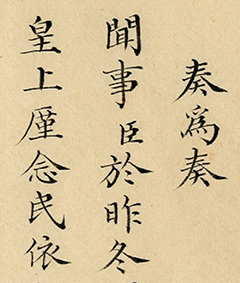 奏為奏
聞事臣於昨冬
皇上廑念民依